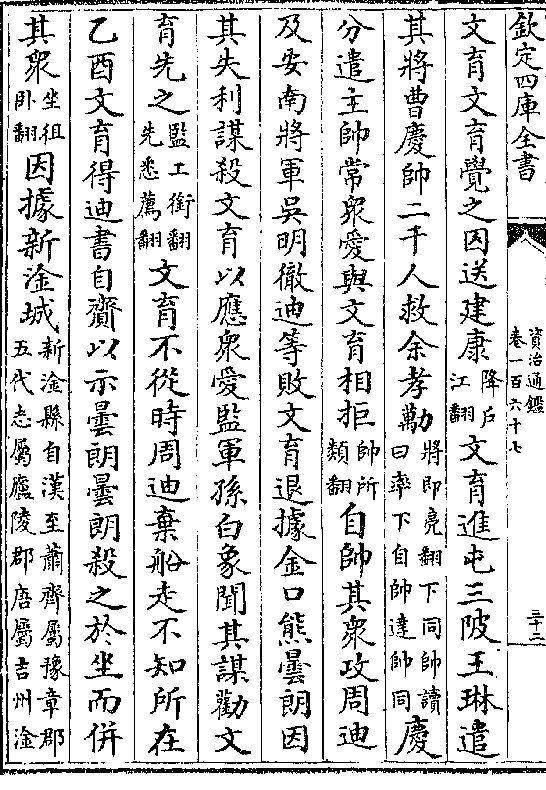 欽定四庫全書
資治通鑑
卷一百六十七
三十二
文育文育覺之囚送建康降戶江翻文育進屯三陂王琳遣
其將曹慶帥二千人救余孝勱將即亮翻下同帥讀曰率下自帥達帥同慶
分遣主帥常衆愛與文育相拒帥所類翻自帥其衆攻周迪
及安南將軍吳明徹迪等敗文育退據金口熊曇朗因
其失利謀殺文育以應衆愛監軍孫白象聞其謀勸文
育先之監工銜翻先悉薦翻文育不從時周迪棄船走不知所在
乙酉文育得迪書自齎以示曇朗曇朗殺之於坐而併
其衆坐徂卧翻因據新淦城新淦縣自漢至蕭齊屬豫章郡五代志屬廬陵郡唐屬吉州淦